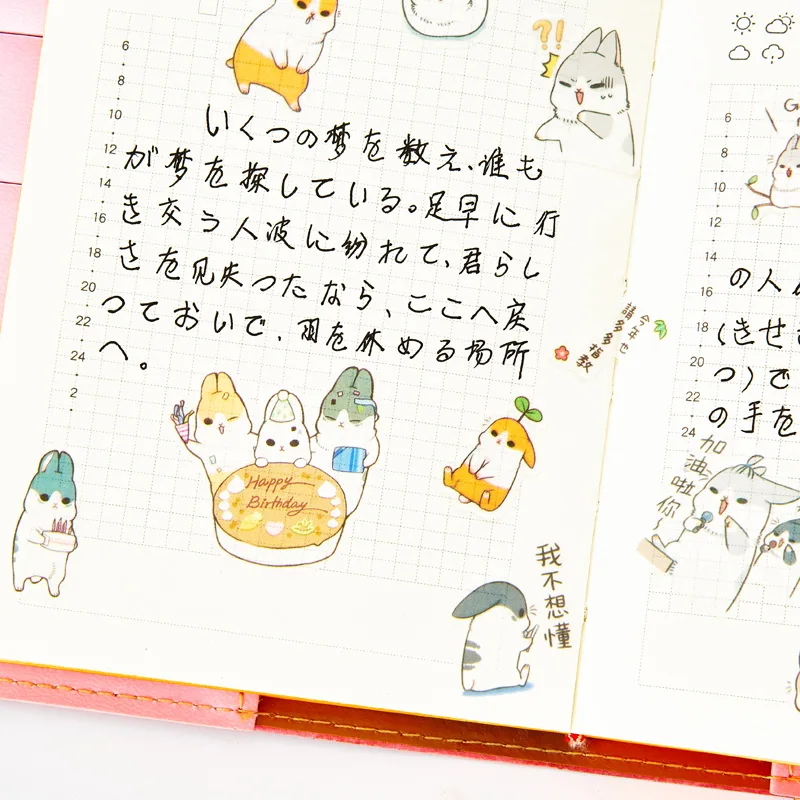 6
8
10
12
14
16
18
20
22
24
2
いくつの夢を数え、誰も
が夢を探している。足早に行
き交う人波に紛れて、君らし
さを見失ったなら、ここへ戻
っておいで、羽を休める場所
へ。
?!
今年也
請多多指教
Happy
Birthday
我不想懂
6
8
10
12
14
16
18
20
22
24
の人
(きせ
つ)で
の手を
加油啦你~